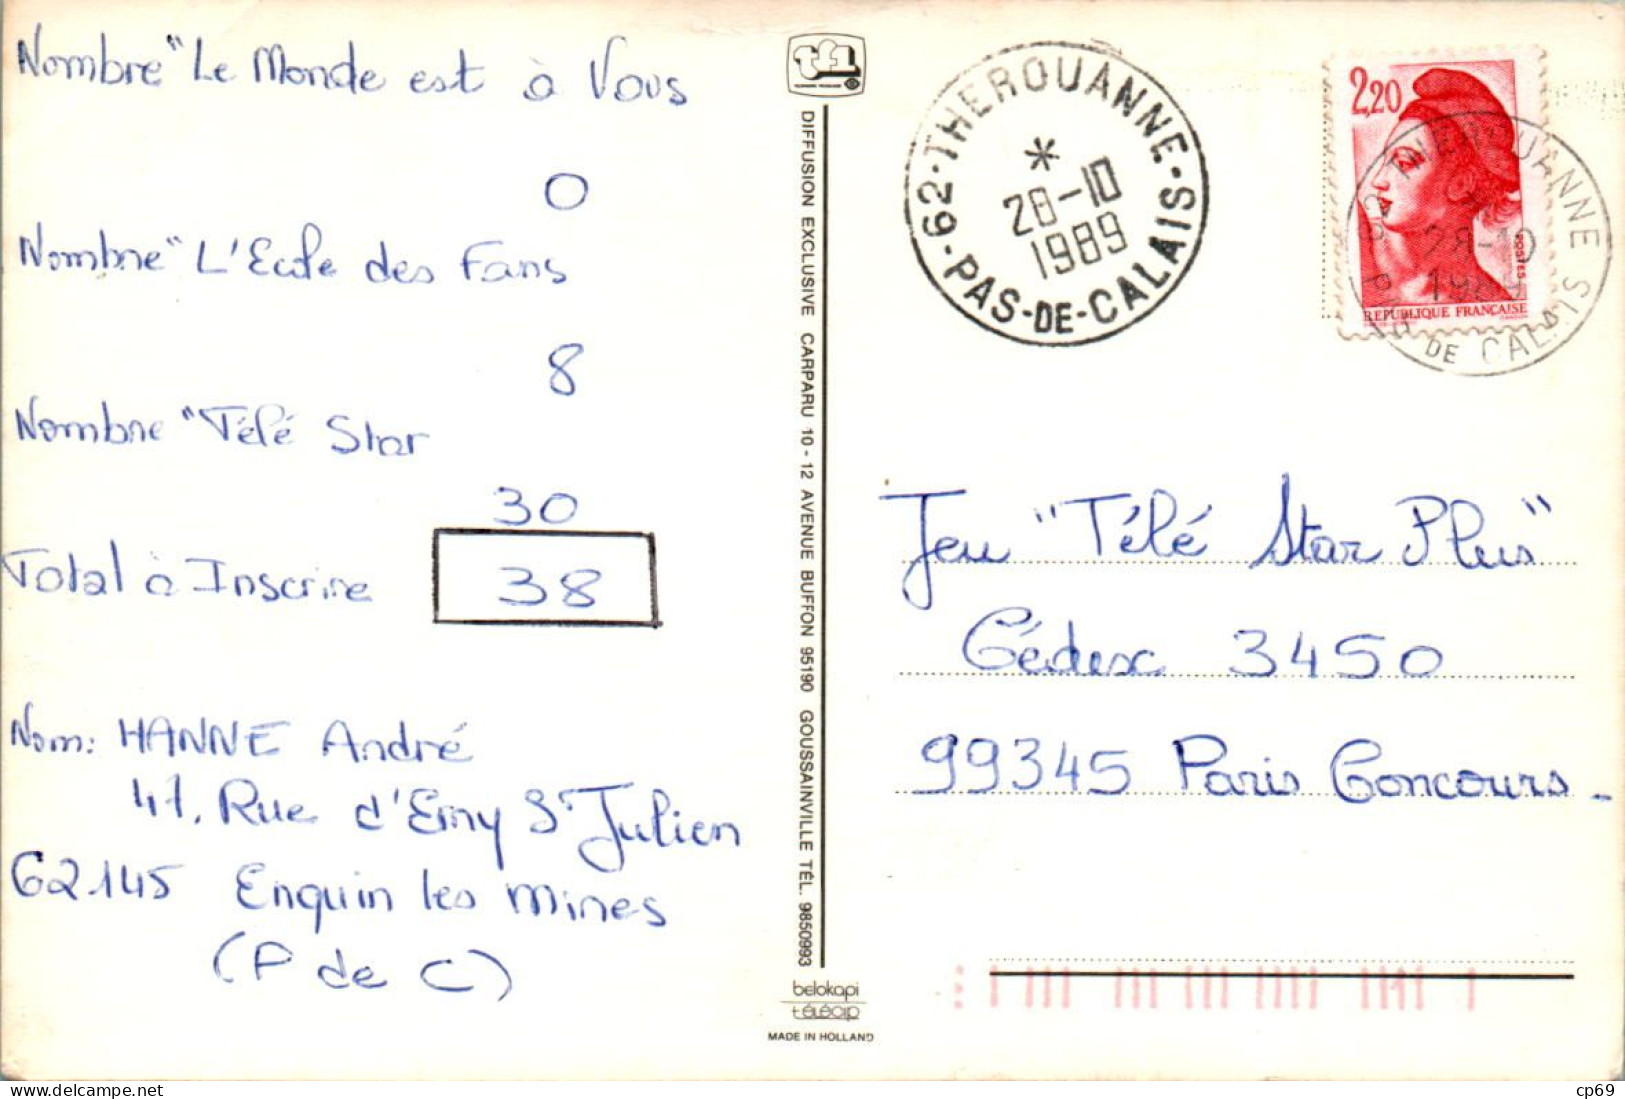 Nombre "Le Monde est à Vous
0
Nombre "L'Ecole des Fans
8
Nombre "Télé Star
30
Total à Inscrire 38
Nom: HANNE André
41, Rue d'Erny St Julien
62145 Enquin les Mines
(P de C)
tf1
DIFFUSION EXCLUSIVE CARPARU 10-12 AVENUE BUFFON 95190 GOUSSAINVILLE TÉL. 9850993
belokapi
téléclip
MADE IN HOLLAND
62-THEROUANNE-
*
28-10
1989
-PAS-DE-CALAIS
2,20
POSTES
REPUBLIQUE FRANÇAISE
62 THEROUANNE
28-10
1989
PAS DE CALAIS
Jeu "Télé Star Plus"
Cédex 3450
99345 Paris Concours-
cp69